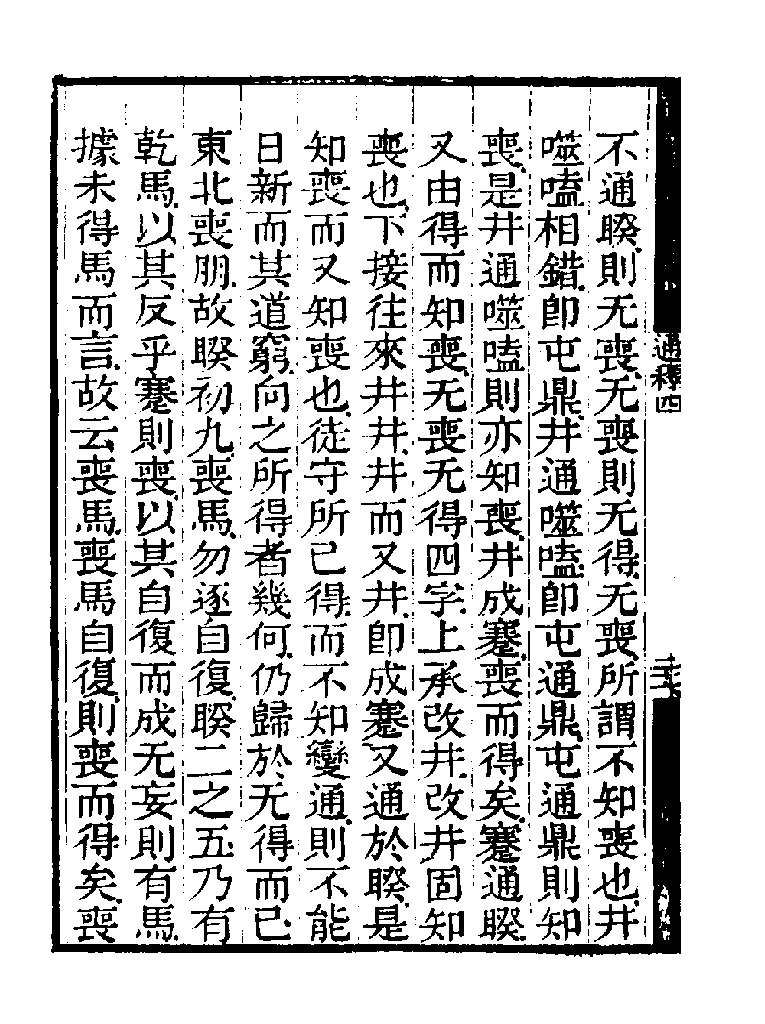 不通睽則无喪无喪則无得无喪所謂不知喪也井
噬嗑相錯卽屯鼎井通噬嗑卽屯通鼎屯通鼎則知
喪是井通噬嗑則亦知喪井成蹇喪而得矣蹇通睽
又由得而知喪无喪无得四字上承改井改井固知
喪也下接往來井井井而又井卽成蹇又通於睽是
知喪而又知喪也徒守所已得而不知變通則不能
日新而其道窮向之所得者幾何仍歸於无得而已
東北喪朋故睽初九喪馬勿逐自復睽二之五乃有
乾馬以其反乎蹇則喪以其自復而成无妄則有馬
據未得馬而言故云喪馬喪馬自復則喪而得矣喪
通釋四